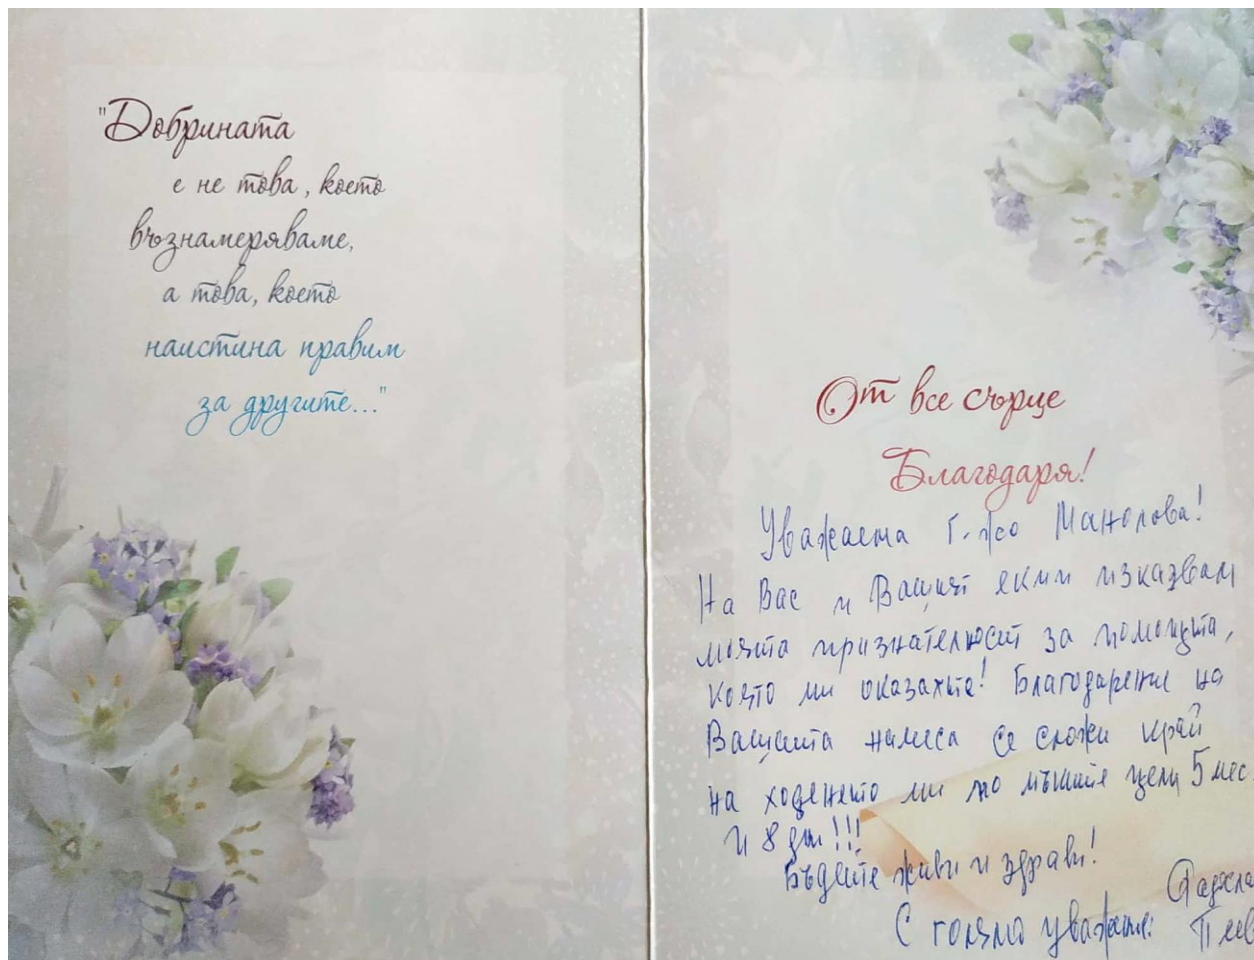 "Добрината
е не това, което
възнамеряваме,
а това, което
наистина правим
за другите..."
От все сърце
Благодаря!
Уважаема Г-жо Манолова!
На Вас и Вашият екип изказвам
моята признателност за помощта,
която ми оказахте! Благодарение на
Вашата намеса се сложи край
на ходенето ми по мъките цели 5 мес.
и 8 дни!!!
Бъдете живи и здрави!
С голямо уважение: